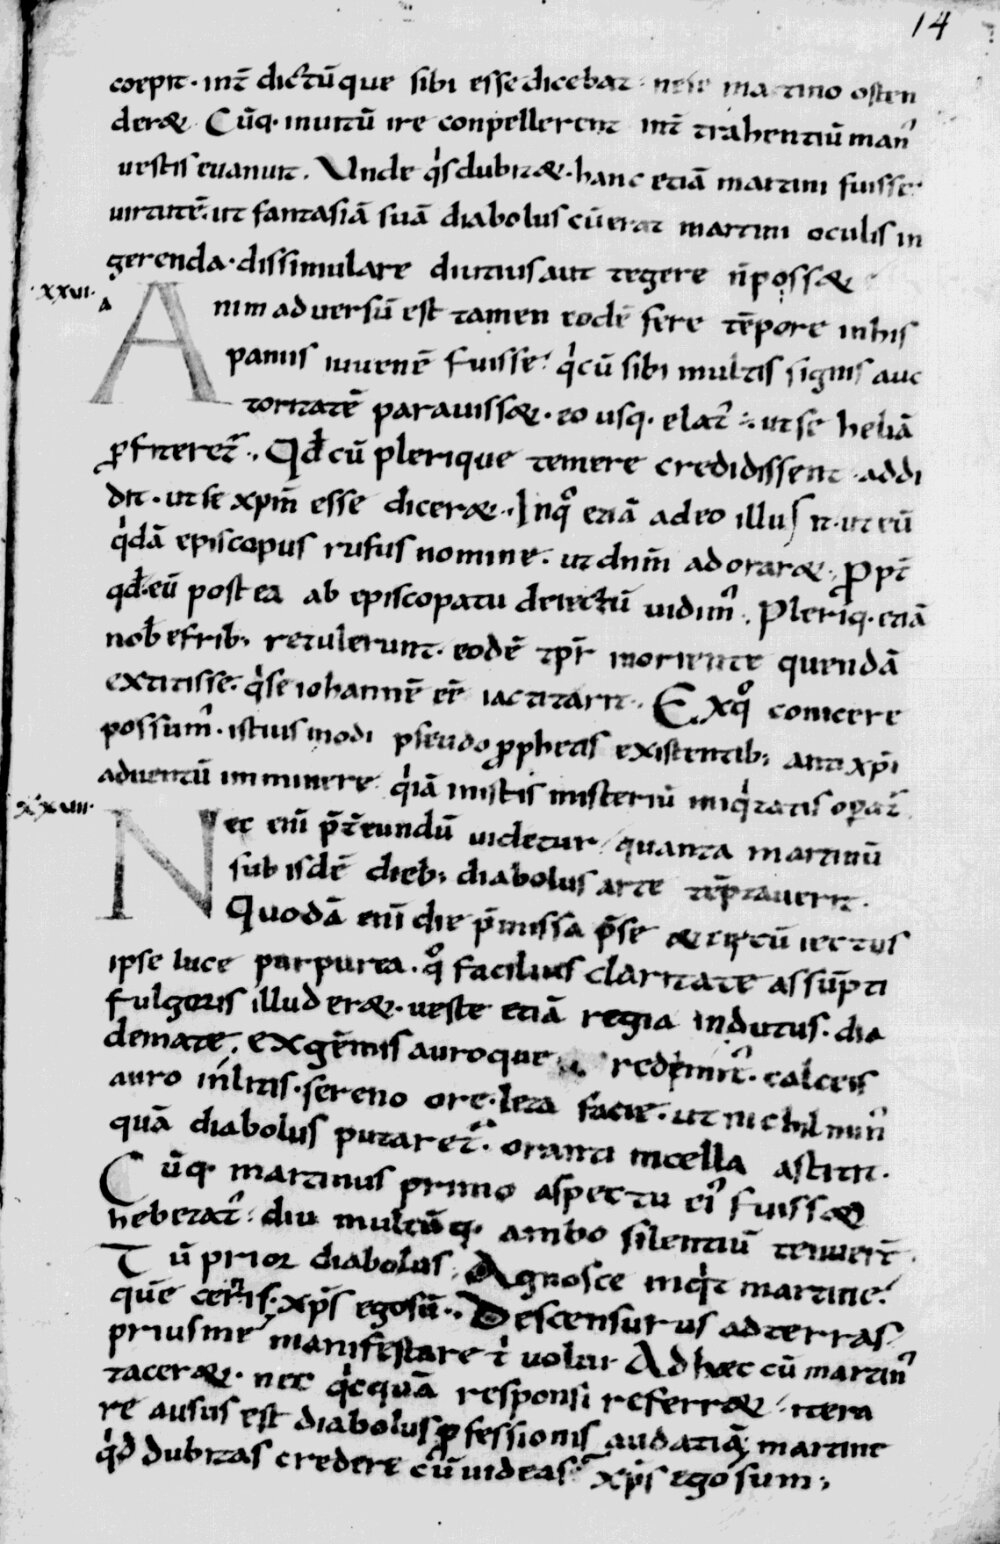 14
coepit · int̄ dictūque sibi esse dicebat · ne se martino osten
der&. Cūq· inuitū ire conpellerent int̄ trahentiū man᾽
uestis euanuit. Unde q̍s dubit&· hanc etiā martini fuisse
uirtutē· ut fantasiā suā diabolus cū erat martini oculis in
gerenda· dissimulare diutius aut tegere n̄ poss&
·xxvii· a
Animaduersū est tamen eodē fere tēpore in his
paniis iuuenē fuisse· q̍ cū sibi multis signis auc
toritatē parauiss&· eo usq· elat᾽· ut se heliā
ꝓfiteret᾽. Qđ cū plerique temere credidissent · addi
dit· ut se xp̄m esse dicer&· In qͦ etiā adeo illusit· ut eū
q̍dā episcopus rufus nomine· ut dn̄m adorar&. Ꝓpt̄
qđ eū postea ab episcopatu deiectū uidim᾽. Pleriq· etiā
nob̄ efrib; retulerunt· eodē tp̄r in oriente quendā
extitisse· q̍ se iohannē eē iactitarit. Ex qͦ conicere
possum᾽· istius modi pseudo ꝓphetis existentib; anti xp̄i
aduentū imminere q̍a in istis misteriū iniq̍tatis oꝑat᾽.
·xxviii·
Nec eni̅ p̄tereundū uidetur quanta martinū
sub isdē dieb; diabolus arte tēptauerit.
Quodā eni̅ die p̄missa p̄ se & circūiectus
ipse luce purpurea· qͦ facilius claritate assūpti
fulgoris illuder&· ueste etiā regia indutus· dia
demate ex gēmis auroque redimit᾽· calceis
auro inlitis· sereno ore· leta facie· ut nichil min᾽
quā diabolus putaret᾽· oranti in cella astitit.
Cūq· martinus primo aspectu ei᾽ fuiss&
hebetat᾽· diu multūq· ambo silentiū tenuer̄t.
Tū prior diabolus. Agnosce inq̍t martine·
quē cernis· xp̄s ego sū. Descensurus ad terras
prius me manifestare t̍ uolui Ad hæc cū martin᾽
tacer&· nec q̍cquā responsi referr&· itera
re ausus est diabolus ꝓfessionis audatiā martine
q̍d dubitas credere cū uideas xp̄s ego sum;